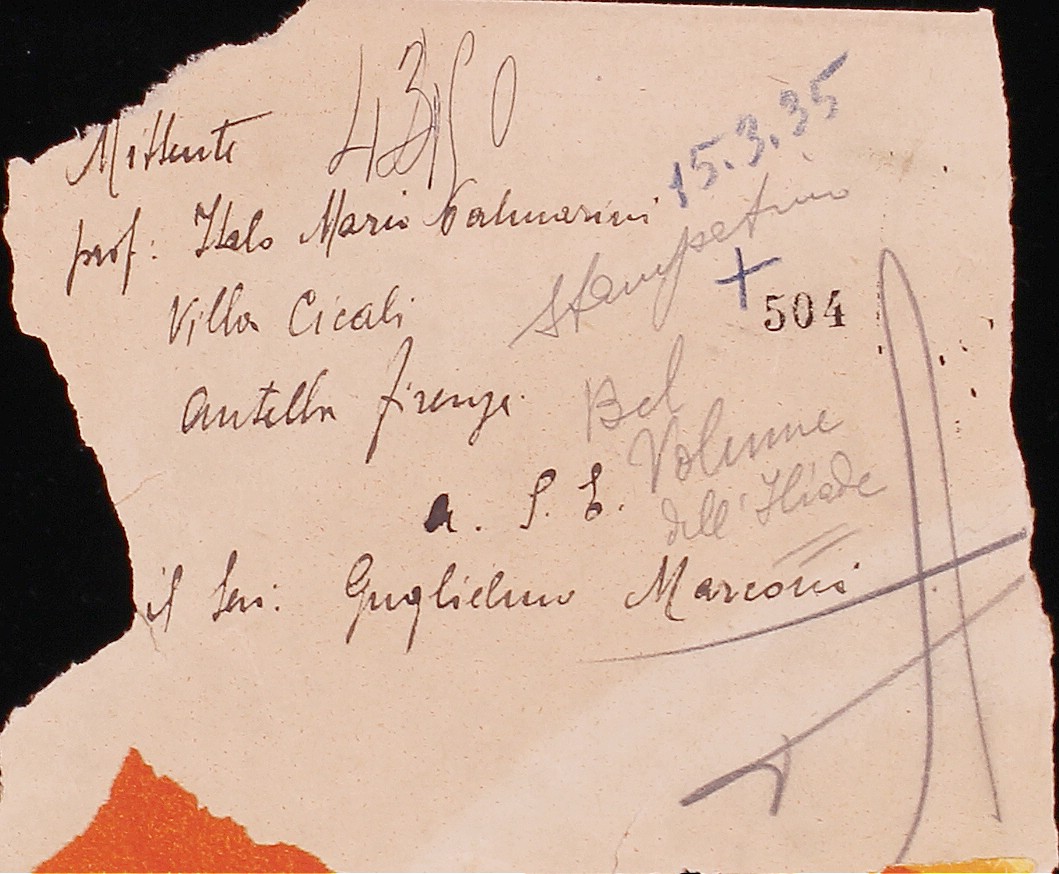 Mittente 4350
15.3.35
prof: Italo Mario Palmarini
Stampatino
+ 504
Villa Cicali
Antella Firenze.
Bel
Volume
dell'Iliade
a. S. E.
il Sen: Guglielmo Marconi